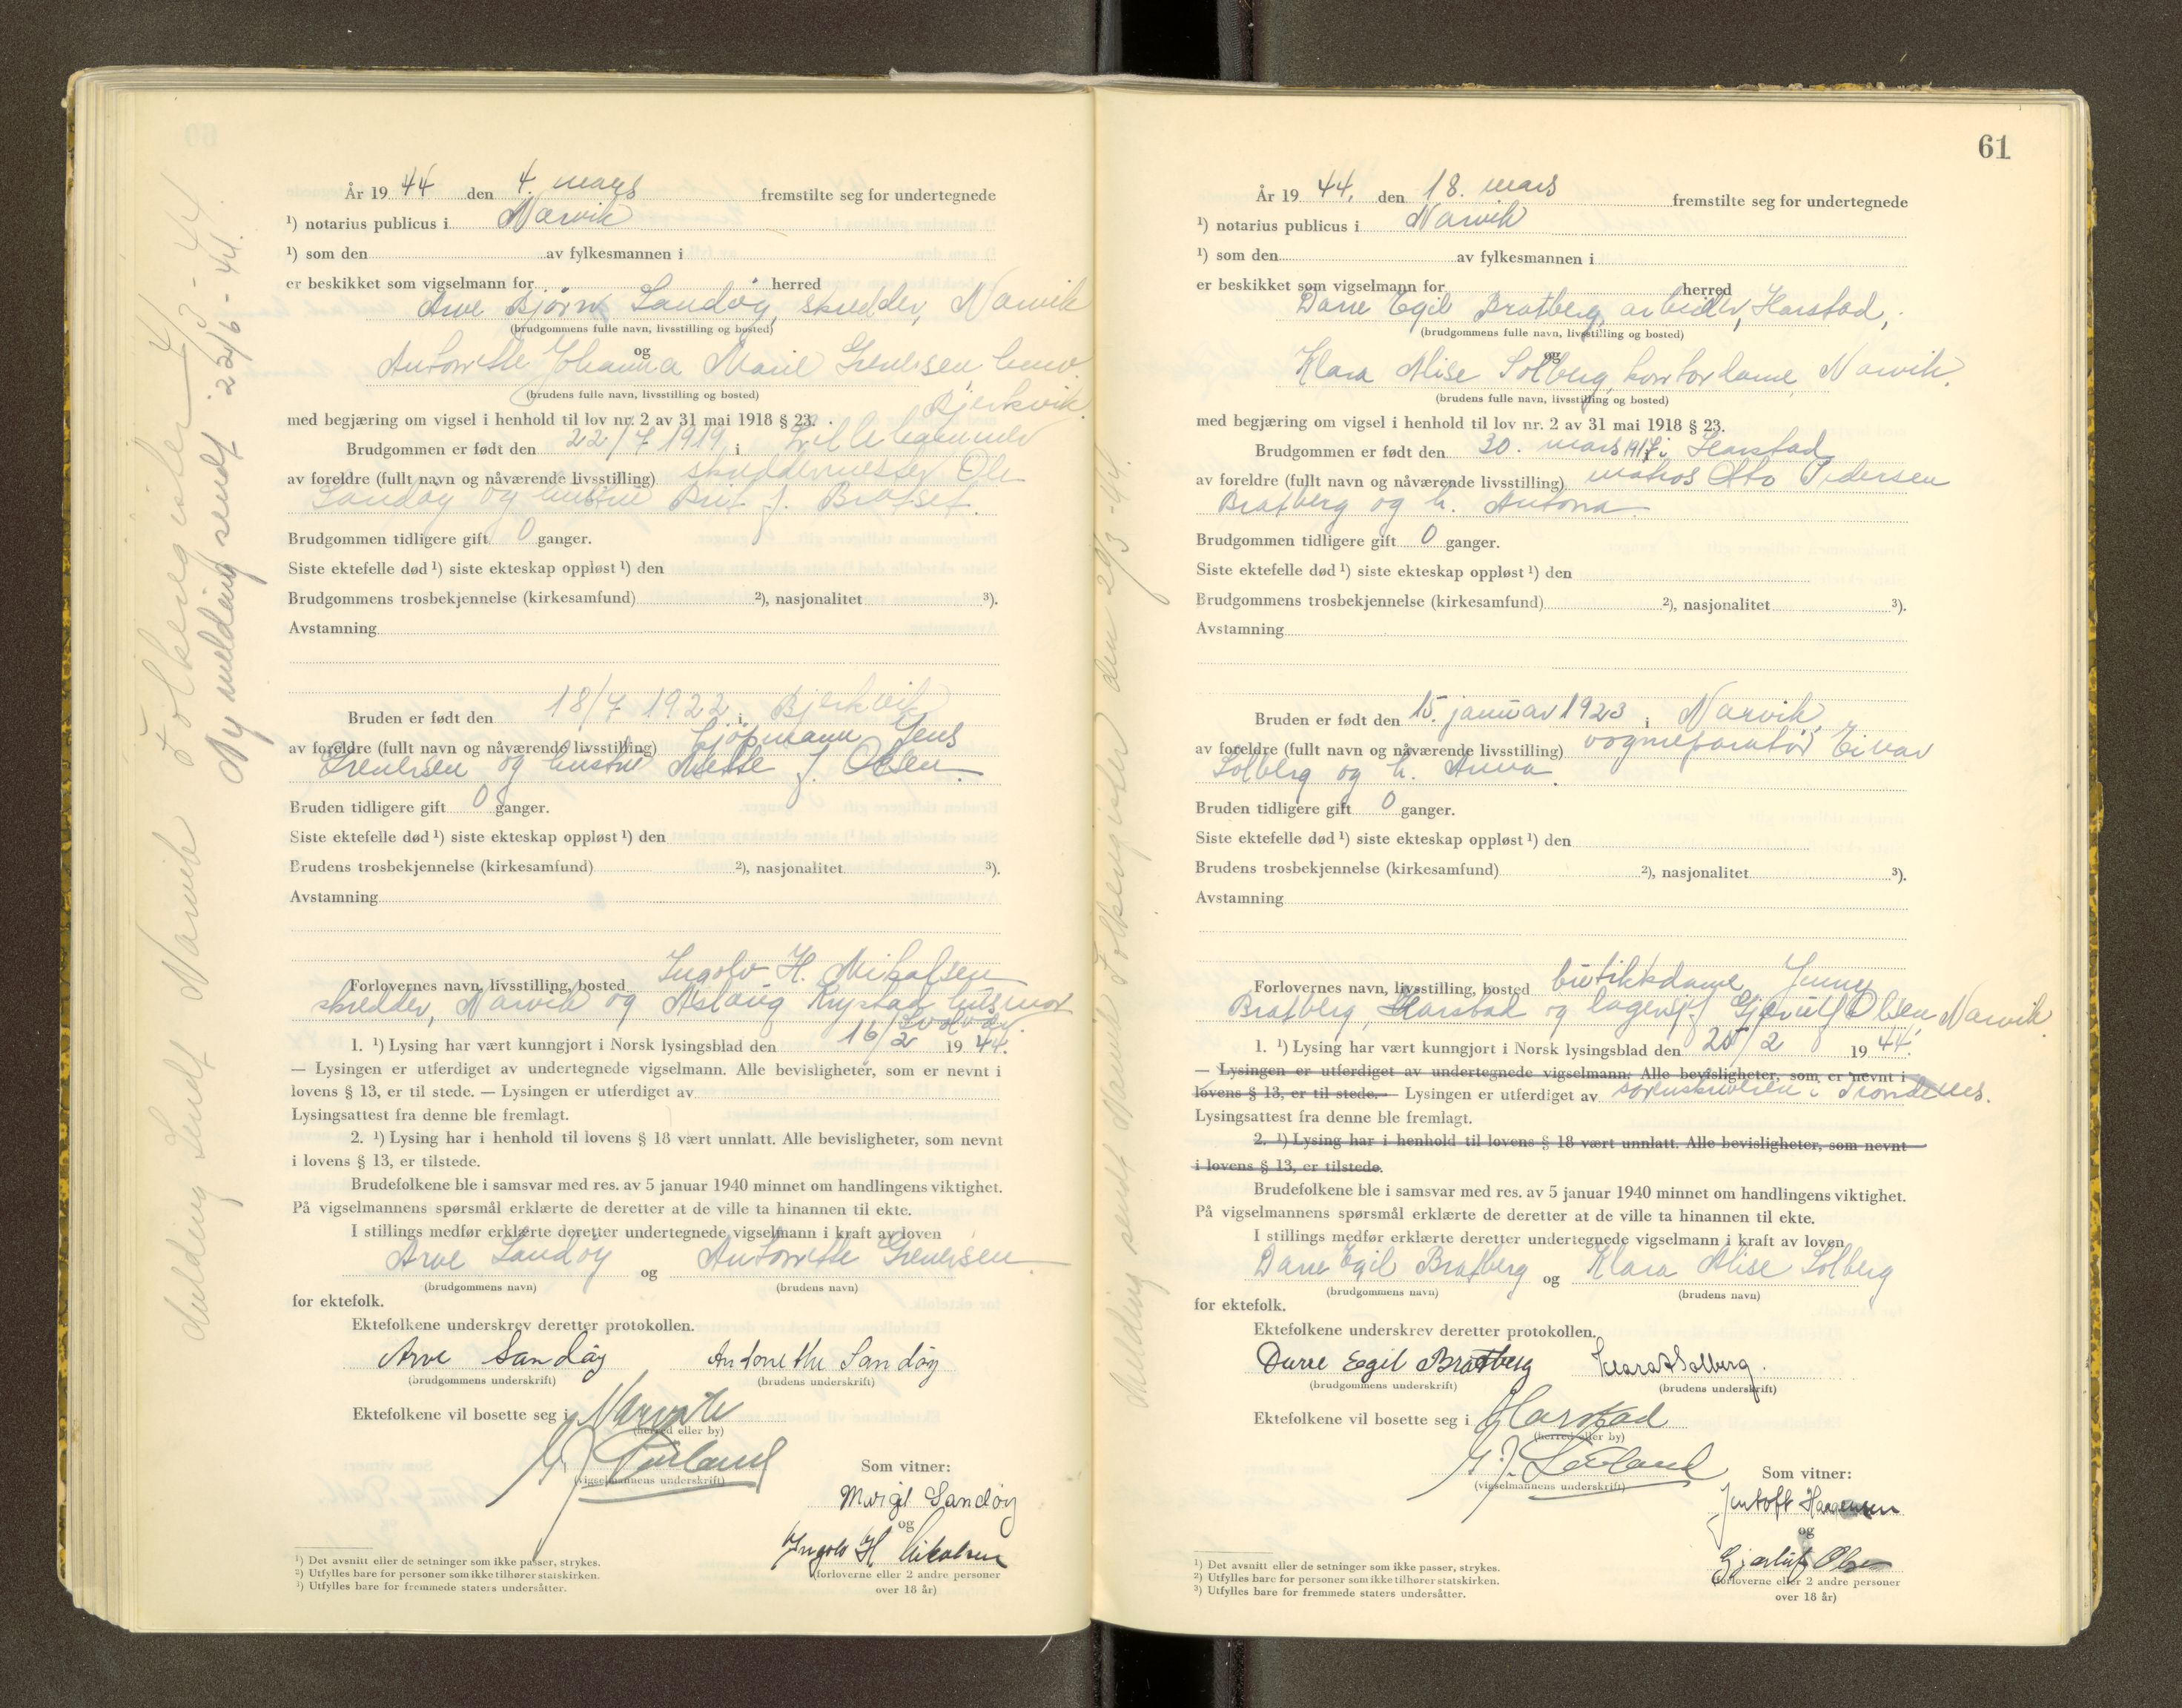 År 19 44 den 4. mars fremstilte seg for undertegnede
¹) notarius publicus i Narvik
¹) som den av fylkesmannen i
er beskikket som vigselmann for herred
Arve Bjørn Sandöy, skredder, Narvik
(brudgommens fulle navn, livsstilling og bosted)
og
Antonette Johanna Marie
(brudens fulle navn, livsstilling og bosted)
Bjerkvik
med begjæring om vigsel i henhold til lov nr. 2 av 31 mai 1918 § 23.
Brudgommen er født den 22/7 1919 i Lillehammer
av foreldre (fullt navn og nåværende livsstilling) skreddermester Ole
Sandöy og hustru Brit J. Bratset.
Brudgommen tidligere gift 0 ganger.
Siste ektefelle død ¹) siste ekteskap oppløst ¹) den
Brudgommens trosbekjennelse (kirkesamfund) ²), nasjonalitet ³).
Avstamning
Bruden er født den 18/7 1922 i Bjerkvik
av foreldre (fullt navn og nåværende livsstilling) kjøpmann Jens
og hustru Mette J. Olsen.
Bruden tidligere gift 0 ganger.
Siste ektefelle død ¹) siste ekteskap oppløst ¹) den
Brudens trosbekjennelse (kirkesamfund) ²), nasjonalitet ³).
Avstamning
Forlovernes navn, livsstilling, bosted Ingolv H. Nikolsen
skredder, Narvik og Aslaug Rystad husmor
Svolvær.
1. ¹) Lysing har vært kunngjort i Norsk lysingsblad den 16/2 19 44.
— Lysingen er utferdiget av undertegnede vigselmann. Alle bevisligheter, som er nevnt i
lovens § 13, er til stede. — Lysingen er utferdiget av
Lysingsattest fra denne ble fremlagt.
2. ¹) Lysing har i henhold til lovens § 18 vært unnlatt. Alle bevisligheter, som nevnt
i lovens § 13, er tilstede.
Brudefolkene ble i samsvar med res. av 5 januar 1940 minnet om handlingens viktighet.
På vigselmannens spørsmål erklærte de deretter at de ville ta hinannen til ekte.
I stillings medfør erklærte deretter undertegnede vigselmann i kraft av loven
Arve Sandöy og Antonette
(brudgommens navn) (brudens navn)
for ektefolk.
Ektefolkene underskrev deretter protokollen.
Arve Sandöy Antonethe Sandöy
(brudgommens underskrift) (brudens underskrift)
Ektefolkene vil bosette seg i Narvik
(herred eller by)
(vigselmannens underskrift)
Som vitner:
Sandöy
og
Ingolv H Nikolsen
(forloverne eller 2 andre personer
over 18 år)
¹) Det avsnitt eller de setninger som ikke passer, strykes.
²) Utfylles bare for personer som ikke tilhører statskirken.
³) Utfylles bare for fremmede staters undersåtter.
Melding sendt Narvik Folkeregister 4/3-44
Ny melding sendt 22/6-44.
61
År 19 44, den 18. mars fremstilte seg for undertegnede
¹) notarius publicus i Narvik
¹) som den av fylkesmannen i
er beskikket som vigselmann for herred
Egil Bratberg, arbeider, Harstad,
(brudgommens fulle navn, livsstilling og bosted)
og
Klara Alise Solberg, kontordame, Narvik.
(brudens fulle navn, livsstilling og bosted)
med begjæring om vigsel i henhold til lov nr. 2 av 31 mai 1918 § 23.
Brudgommen er født den 30. mars 1917 i Harstad
av foreldre (fullt navn og nåværende livsstilling) matros Otto Pedersen
Bratberg og h. Antona
Brudgommen tidligere gift 0 ganger.
Siste ektefelle død ¹) siste ekteskap oppløst ¹) den
Brudgommens trosbekjennelse (kirkesamfund) ²), nasjonalitet ³).
Avstamning
Bruden er født den 15. januar 1923 i Narvik,
av foreldre (fullt navn og nåværende livsstilling) vognreparatör Einar
Solberg og h. Anna.
Bruden tidligere gift 0 ganger.
Siste ektefelle død ¹) siste ekteskap oppløst ¹) den
Brudens trosbekjennelse (kirkesamfund) ²), nasjonalitet ³).
Avstamning
Forlovernes navn, livsstilling, bosted butikkdame Jenny
Bratberg, Harstad og Olsen Narvik.
1. ¹) Lysing har vært kunngjort i Norsk lysingsblad den 25/2 19 44.
— Lysingen er utferdiget av undertegnede vigselmann. Alle bevisligheter, som er nevnt i
lovens § 13, er til stede. — Lysingen er utferdiget av sorenskriveren i Trondenes.
Lysingsattest fra denne ble fremlagt.
2. ¹) Lysing har i henhold til lovens § 18 vært unnlatt. Alle bevisligheter, som nevnt
i lovens § 13, er tilstede.
Brudefolkene ble i samsvar med res. av 5 januar 1940 minnet om handlingens viktighet.
På vigselmannens spørsmål erklærte de deretter at de ville ta hinannen til ekte.
I stillings medfør erklærte deretter undertegnede vigselmann i kraft av loven
Egil Bratberg og Klara Alise Solberg
(brudgommens navn) (brudens navn)
for ektefolk.
Ektefolkene underskrev deretter protokollen.
Egil Bratberg Klara A Solberg.
(brudgommens underskrift) (brudens underskrift)
Ektefolkene vil bosette seg i Harstad
(herred eller by)
(vigselmannens underskrift)
Som vitner:
Jentoft
og
Olsen
(forloverne eller 2 andre personer
over 18 år)
¹) Det avsnitt eller de setninger som ikke passer, strykes.
²) Utfylles bare for personer som ikke tilhører statskirken.
³) Utfylles bare for fremmede staters undersåtter.
Melding sendt Narvik Folkeregister den 29/3-44.